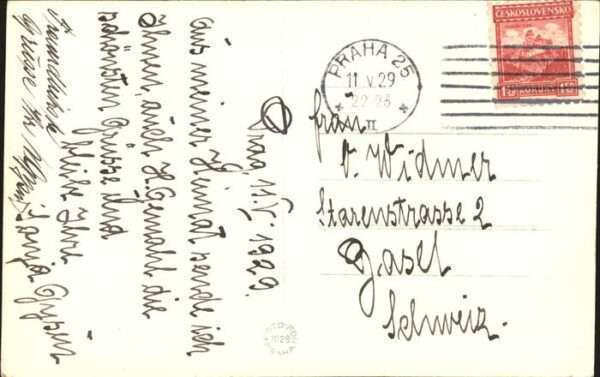 Prag, 11.V.1929.
Aus meiner Heimat sende ich
Ihnen, auch H. Gemahl die
schönsten Grüsse und
bleibe Ihre
Sonja Gysin
Freundliche
Grüsse
PRAHA 25
11 V. 29
22-23
II
ČESKOSLOVENSKO
Frau
V. Widmer
Starenstrasse 2
Basel
Schweiz.
1929
PRAHA